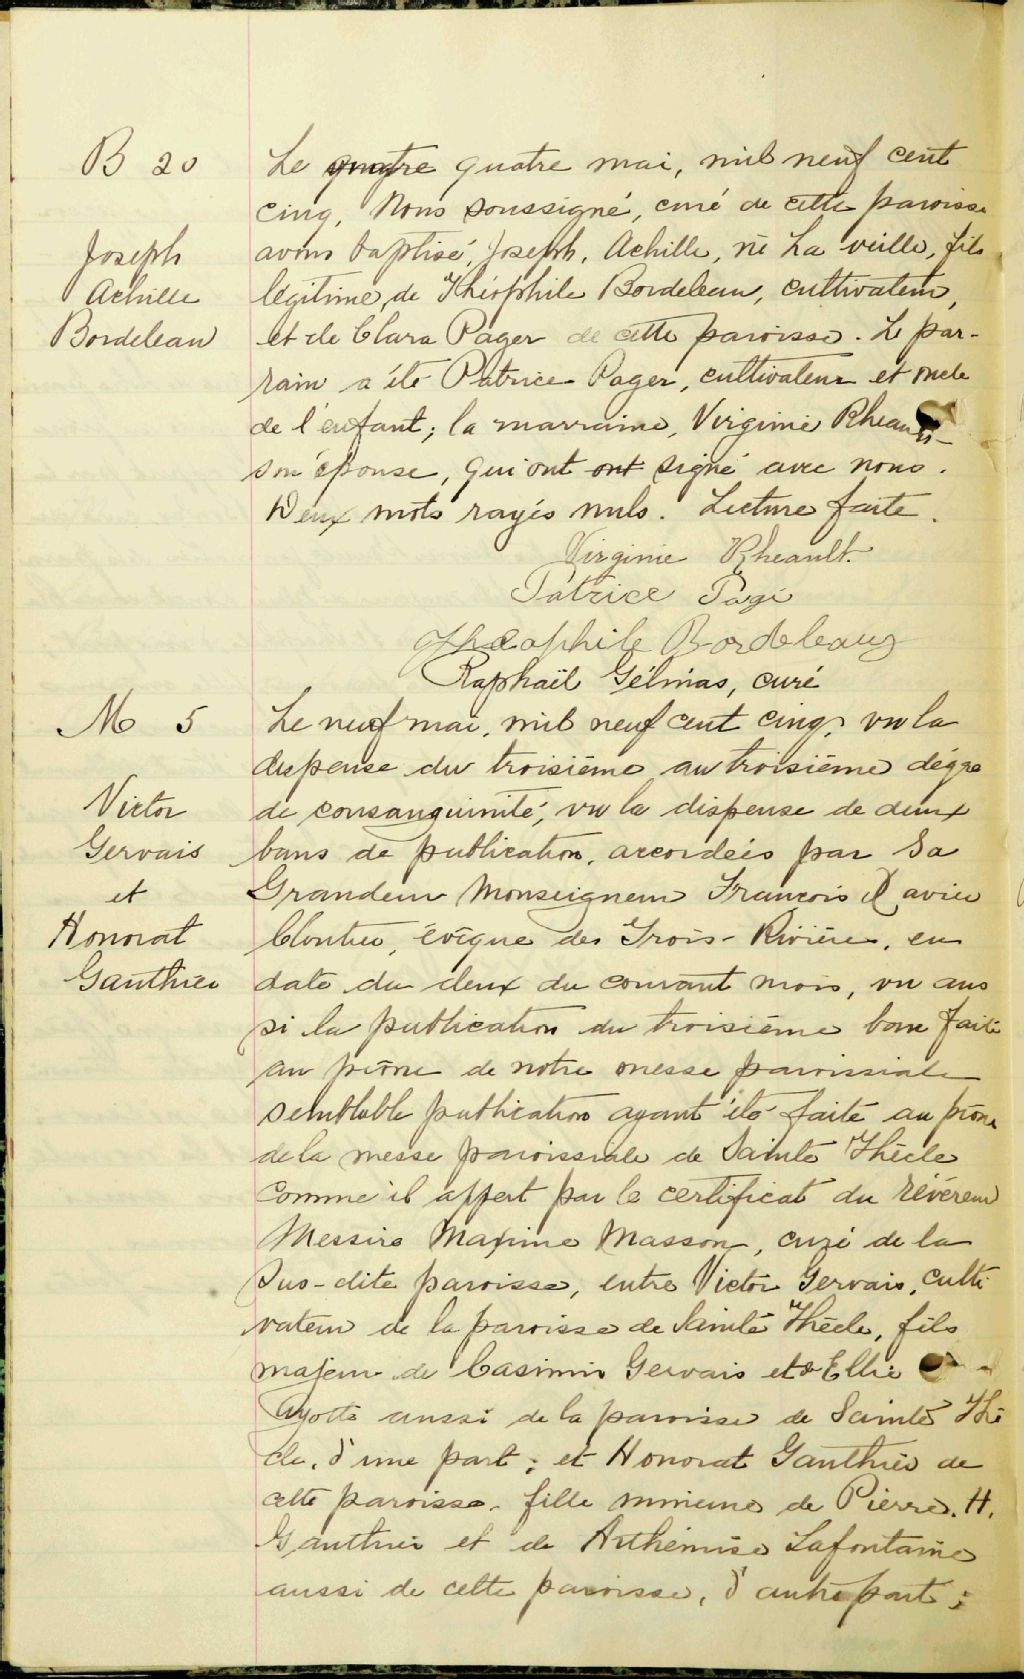 B 20
Joseph
Achille
Bordeleau
Le quatre quatre mai, mil neuf cent
cinq, Nous soussigné, curé de cette paroisse
avons baptisé, Joseph, Achille, né La veille, fils
légitime, de Théophile Bordeleau, cultivateur,
et de Clara Pager de cette paroisse. Le par-
rain a été Patrice Pager, cultivateur et oncle
de l'enfant; la marraine, Virginie Rheault
son épouse, qui ont ont signé avec nous.
Deux mots rayés nuls. Lecture faite.
Virginie Rheault.
Patrice Pagé
Théophile Bordeleau
Raphaël Gélinas, curé
M 5
Victor
Gervais
et
Honorat
Gauthier
Le neuf mai, mil neuf cent cinq, vu la
dispense du troisième au troisième dégré
de consanguinité, vu la dispense de deux
bans de publication, accordées par Sa
Grandeur Monseigneur François Xavier
Cloutier, évêque des Trois-Rivières, en
date du deux du courant mois, vu aus
si la publication du troisième ban faite
au prône de notre messe paroissiale
semblable publication ayant été faite au prône
de la messe paroissiale de Sainte Thècle
comme il appert par le certificat du révérend
Messire Maxime Masson, curé de la
sus-dite paroisse, entre Victor Gervais, culti
vateur de la paroisse de Sainte Thècle, fils
majeur de Casimir Gervais et
Ayotte aussi de la paroisse de Sainte Thè
cle, d'une part; et Honorat Gauthier de
cette paroisse, fille mineure de Pierre. H.
Gauthier et de Arthémise Lafontaine
aussi de cette paroisse, d'autre part;